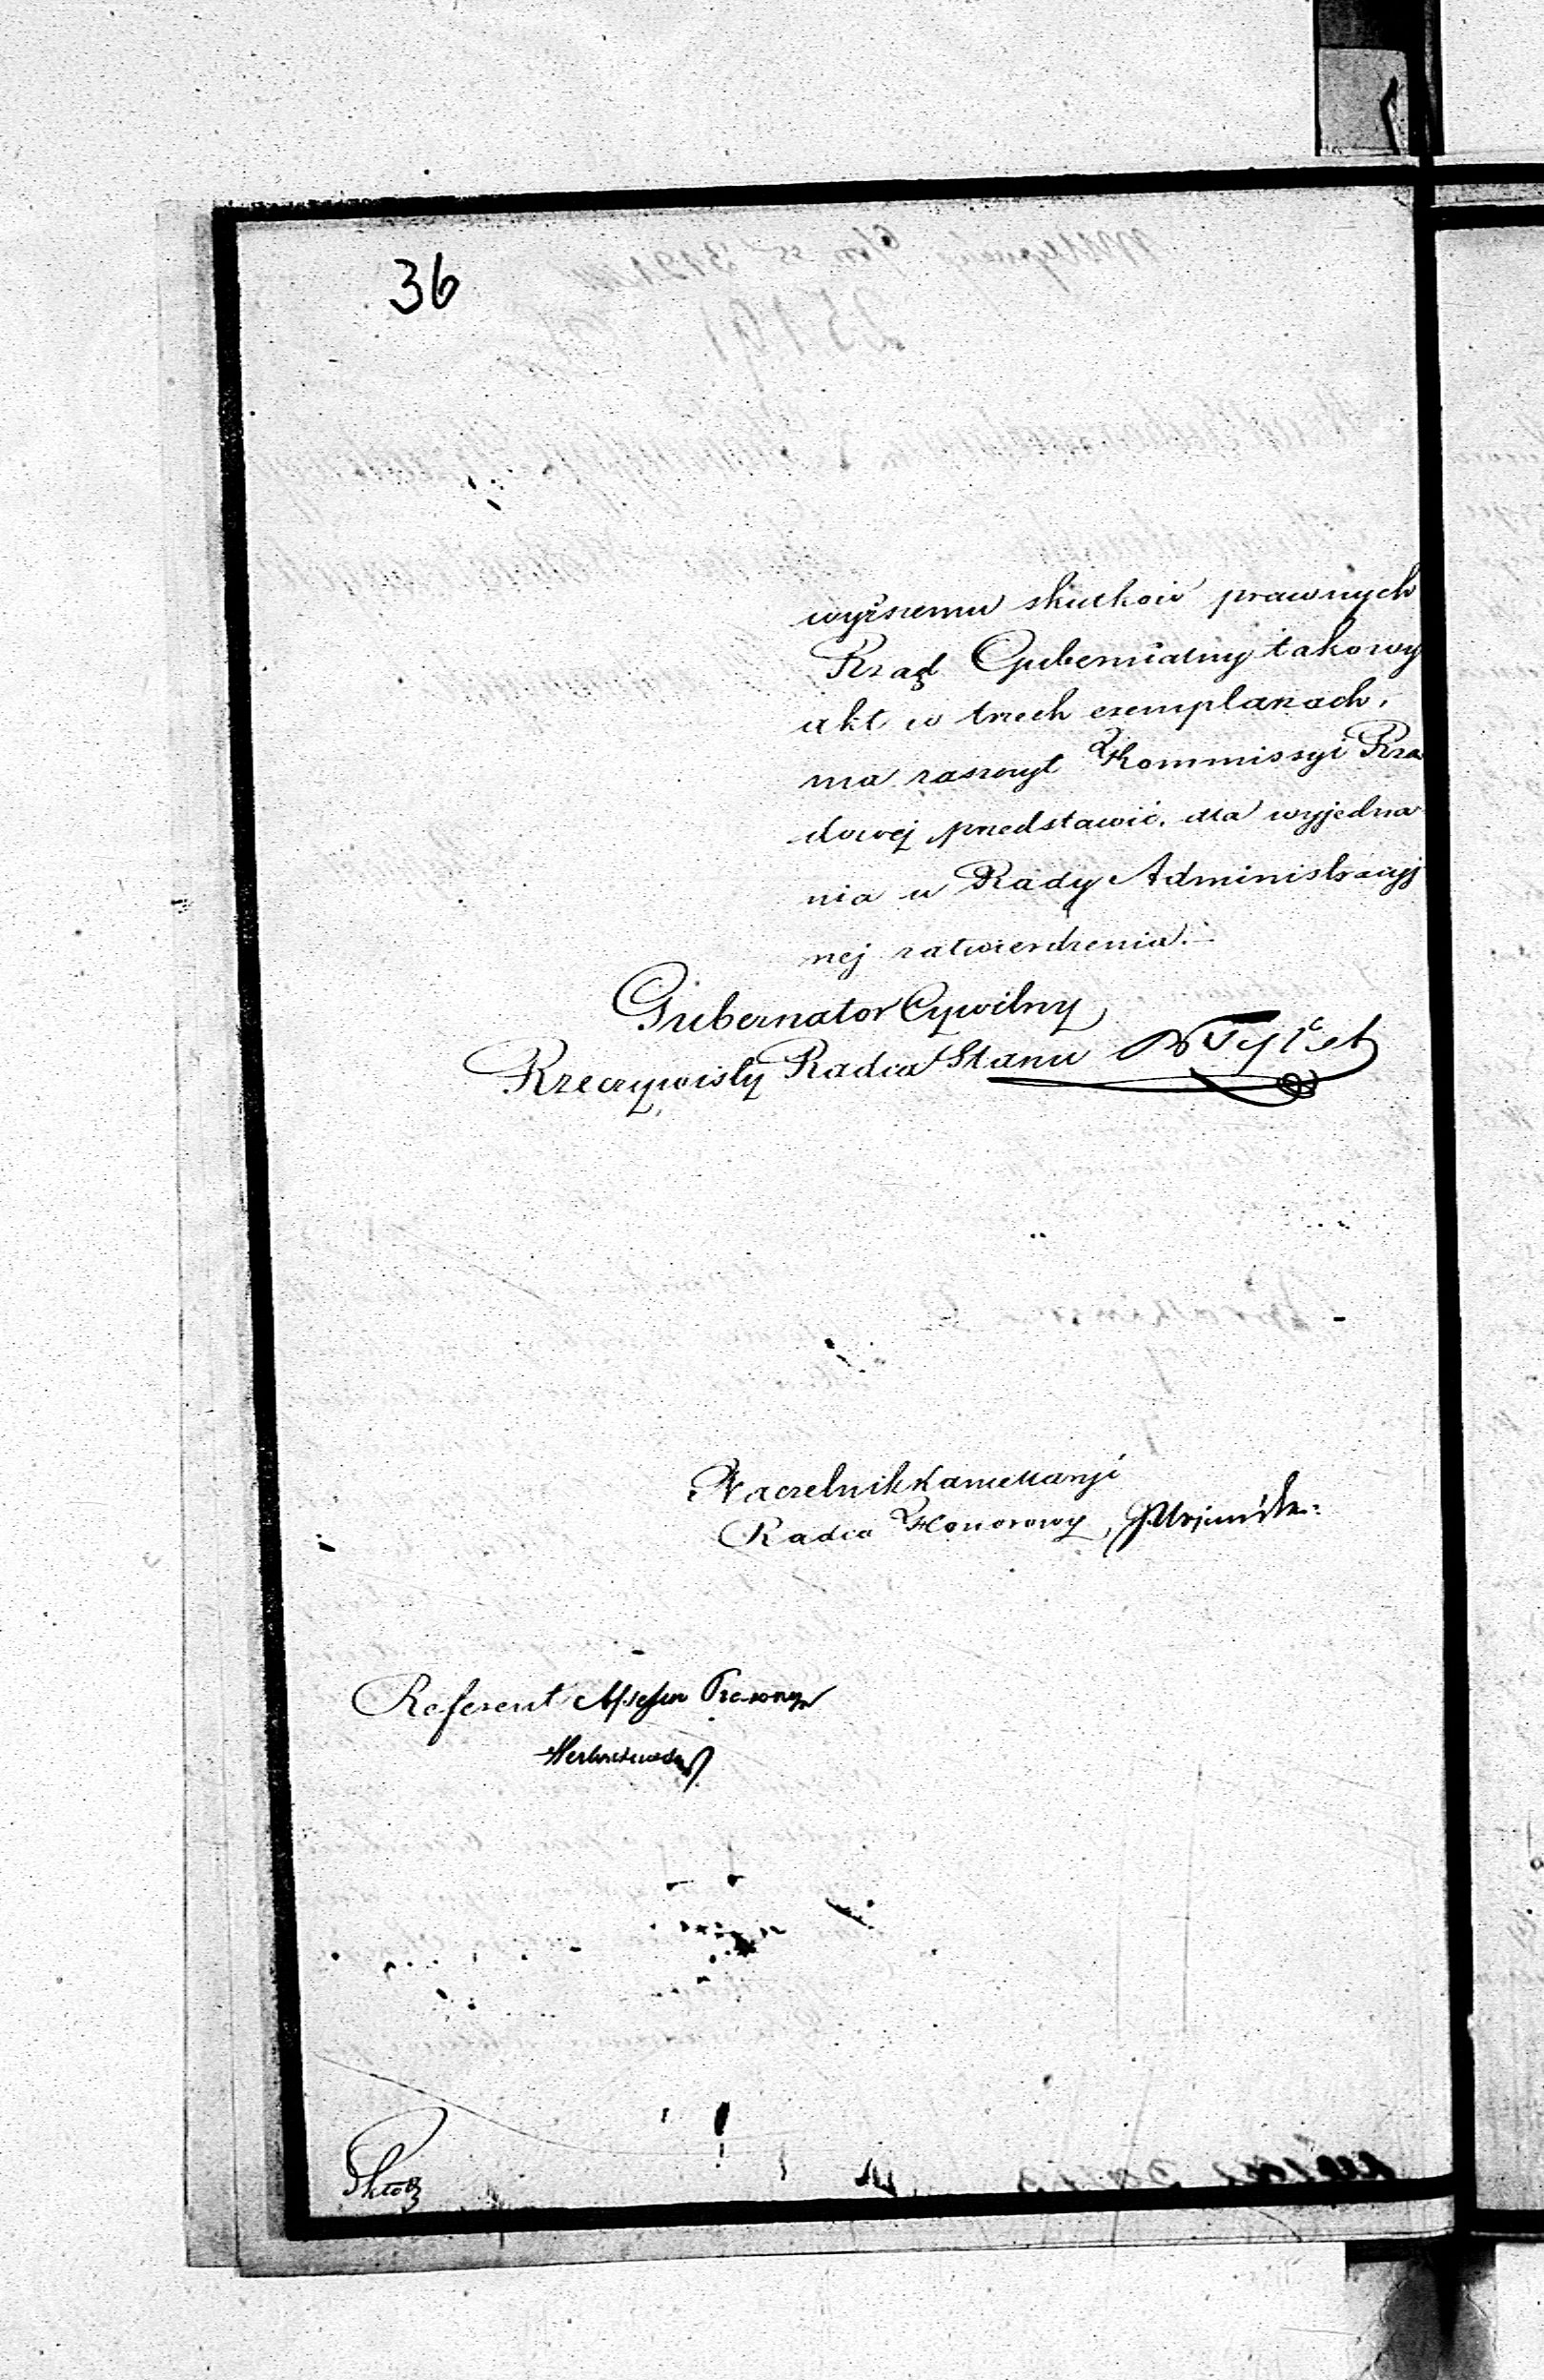 36
wyższemu skutków prawnych
Rząd Gubernialny takowy
akt w trzech exemplarzach,
ma zaszczyt Kommissyi Rzą
dowej przedstawić, dla wyjedna
nia u Rady Administracyj
nej zatwierdzenia.-
Gubernator Cywilny
Rzeczywisty Radca Stanu
Naczelnik Kancellaryi
Radca Honorowy,
Referent Assessor Prawny